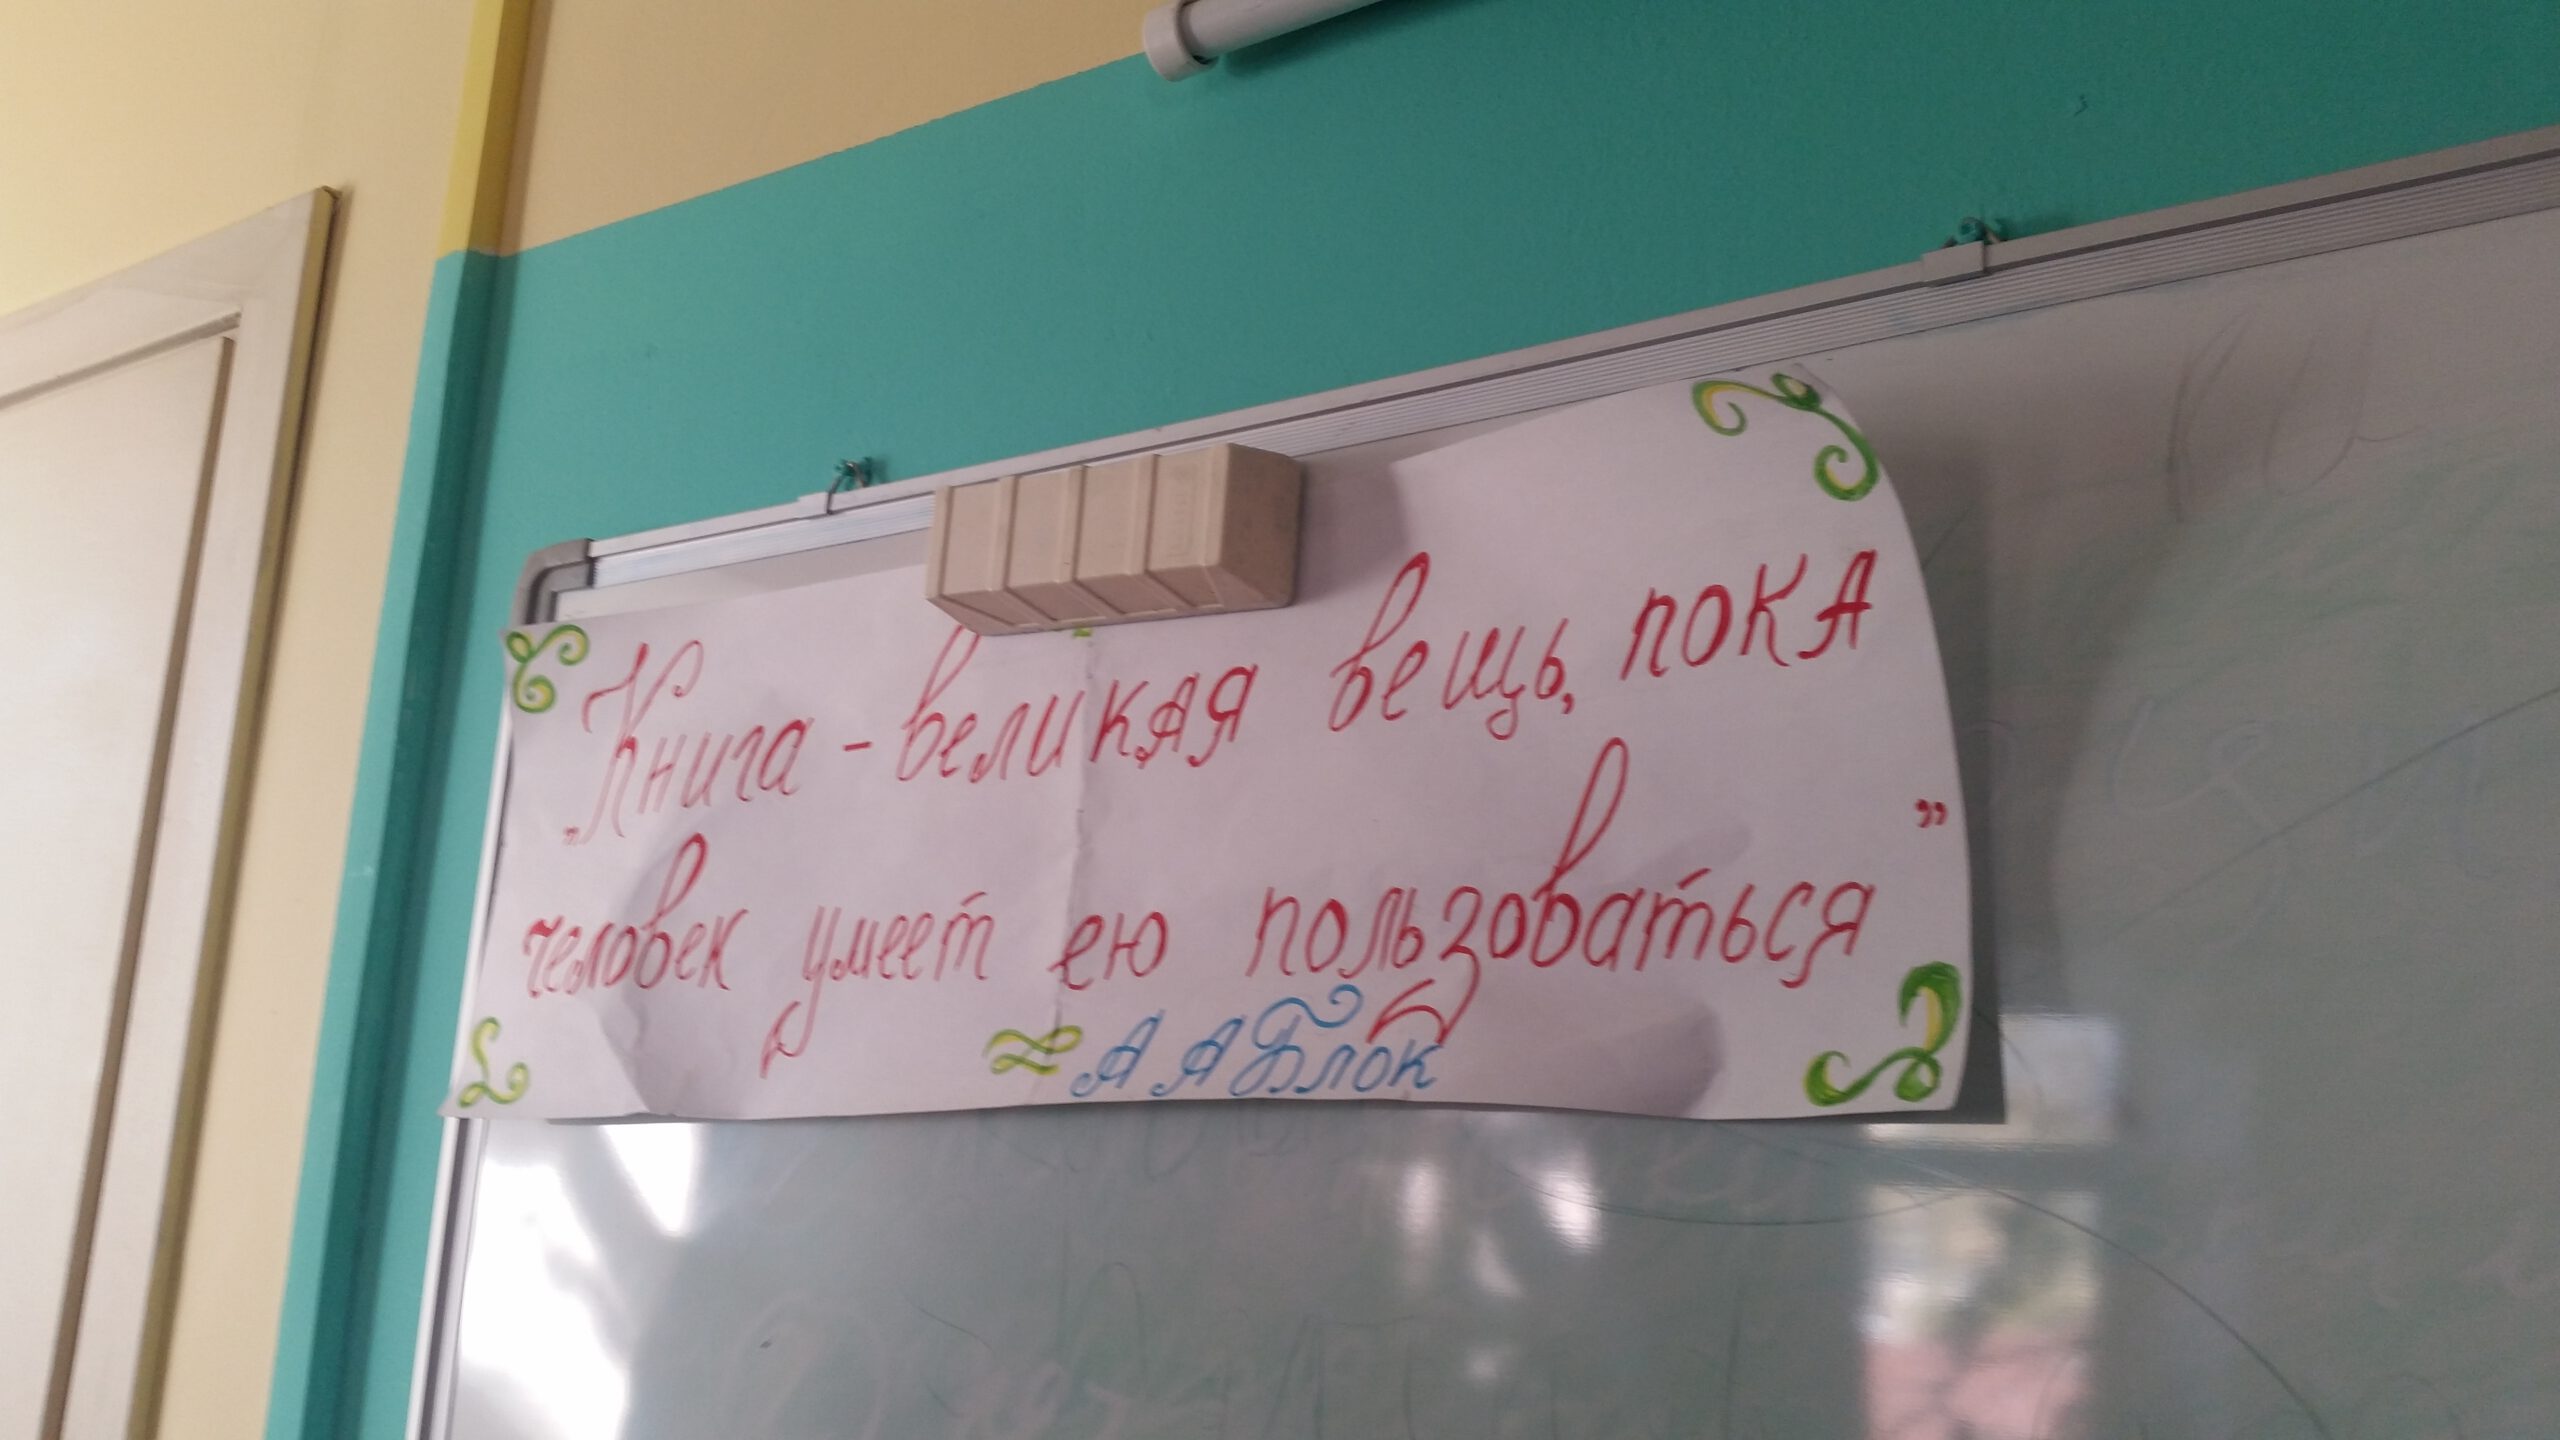 „Книга - великая вещь, пока
человек умеет ею пользоваться”
А А Блок